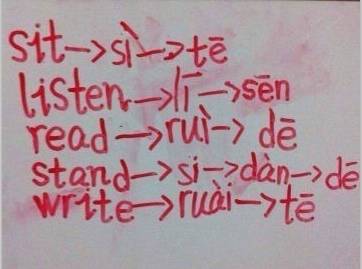 sit→sì→tē
listen→lī→sēn
read→ruì→dē
stand→si→dàn→dē
write→ruài→tē